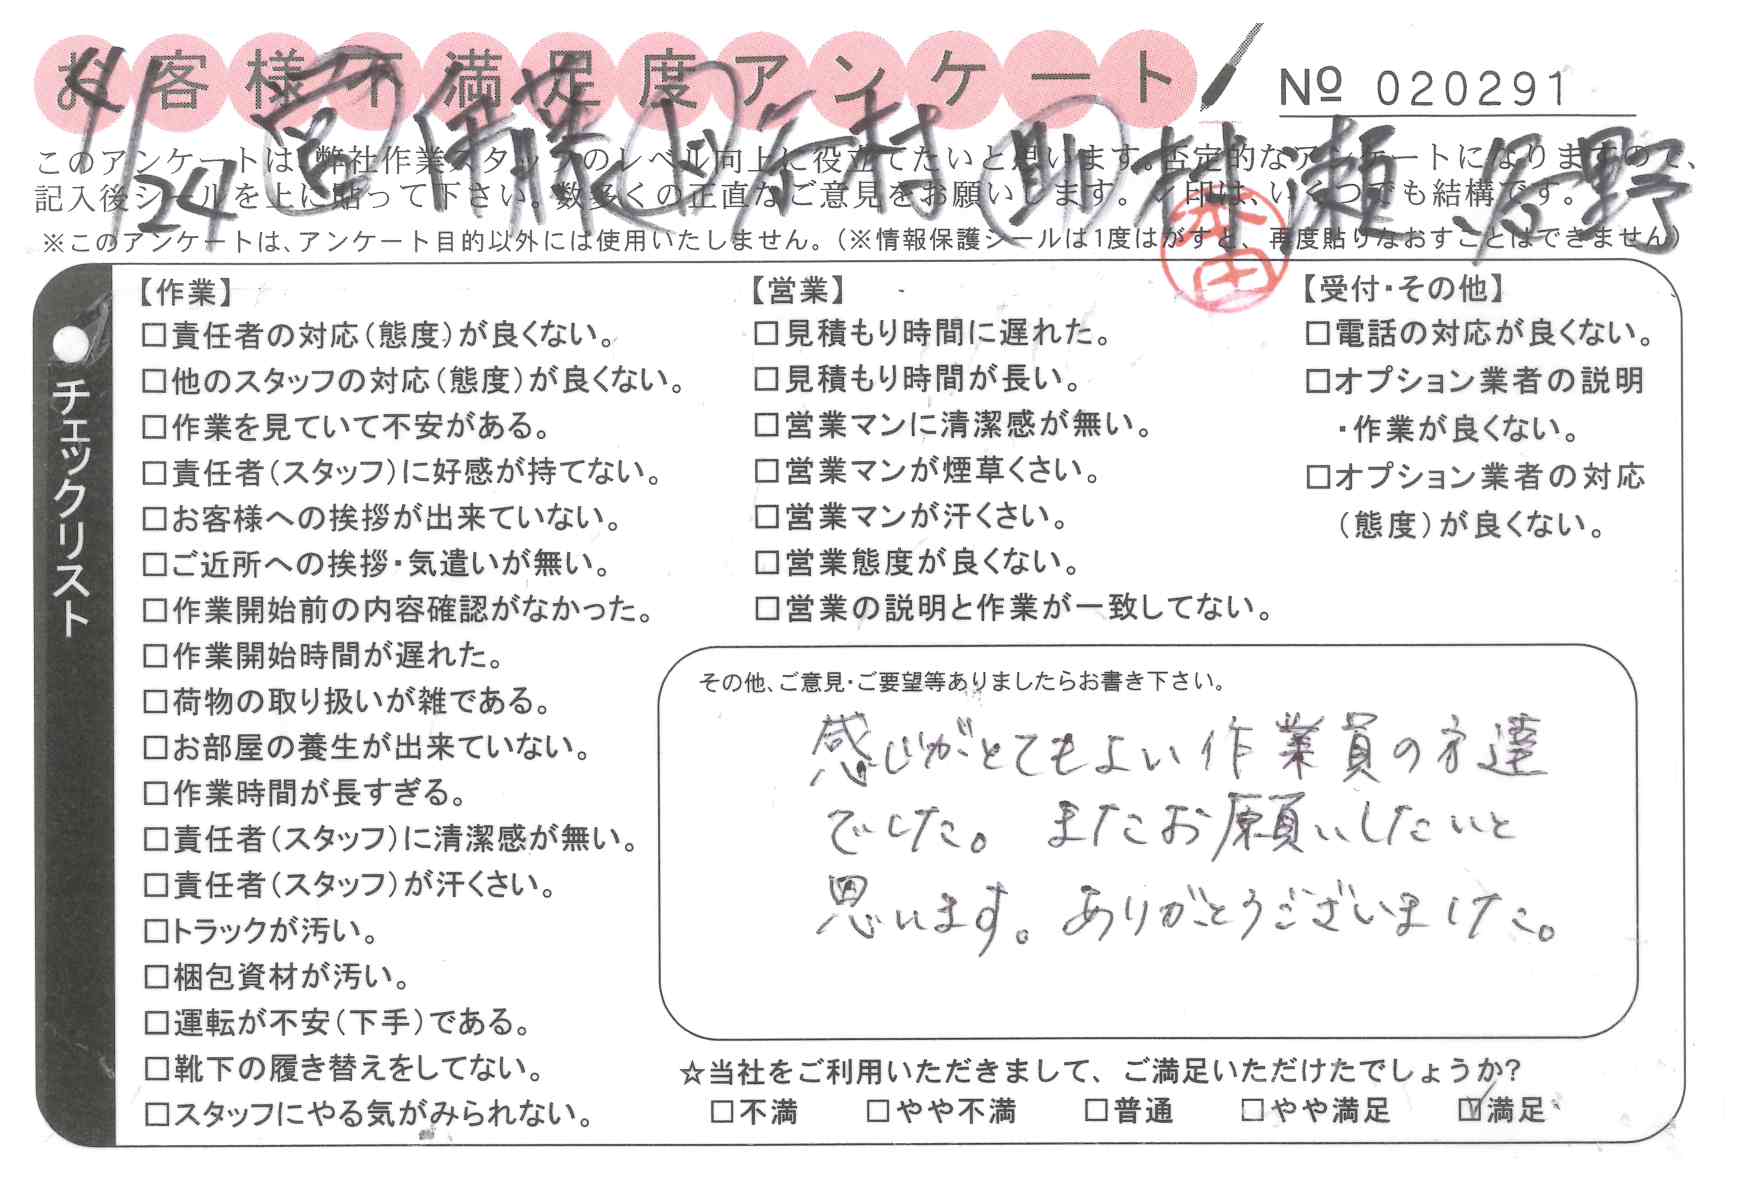 お客様不満足度アンケート
№ 020291
4/24 営 伊藤 ド 谷村 助 村瀬 浜野
このアンケートは、弊社作業スタッフのレベル向上に役立てたいと思います。否定的なアンケートになりますので、
記入後シールを上に貼って下さい。数多くの正直なご意見をお願いします。✓印は、いくつでも結構です。
※このアンケートは、アンケート目的以外には使用いたしません。(※情報保護シールは1度はがすと、再度貼りなおすことはできません)
チェックリスト
【作業】
□責任者の対応(態度)が良くない。
□他のスタッフの対応(態度)が良くない。
□作業を見ていて不安がある。
□責任者(スタッフ)に好感が持てない。
□お客様への挨拶が出来ていない。
□ご近所への挨拶・気遣いが無い。
□作業開始前の内容確認がなかった。
□作業開始時間が遅れた。
□荷物の取り扱いが雑である。
□お部屋の養生が出来ていない。
□作業時間が長すぎる。
□責任者(スタッフ)に清潔感が無い。
□責任者(スタッフ)が汗くさい。
□トラックが汚い。
□梱包資材が汚い。
□運転が不安(下手)である。
□靴下の履き替えをしてない。
□スタッフにやる気がみられない。
【営業】
□見積もり時間に遅れた。
□見積もり時間が長い。
□営業マンに清潔感が無い。
□営業マンが煙草くさい。
□営業マンが汗くさい。
□営業態度が良くない。
□営業の説明と作業が一致してない。
【受付・その他】
□電話の対応が良くない。
□オプション業者の説明
・作業が良くない。
□オプション業者の対応
(態度)が良くない。
その他、ご意見・ご要望等ありましたらお書き下さい。
感じがとてもよい作業員の方達
でした。またお願いしたいと
思います。ありがとうございました。
☆当社をご利用いただきまして、ご満足いただけたでしょうか?
□不満 □やや不満 □普通 □やや満足 ☑満足